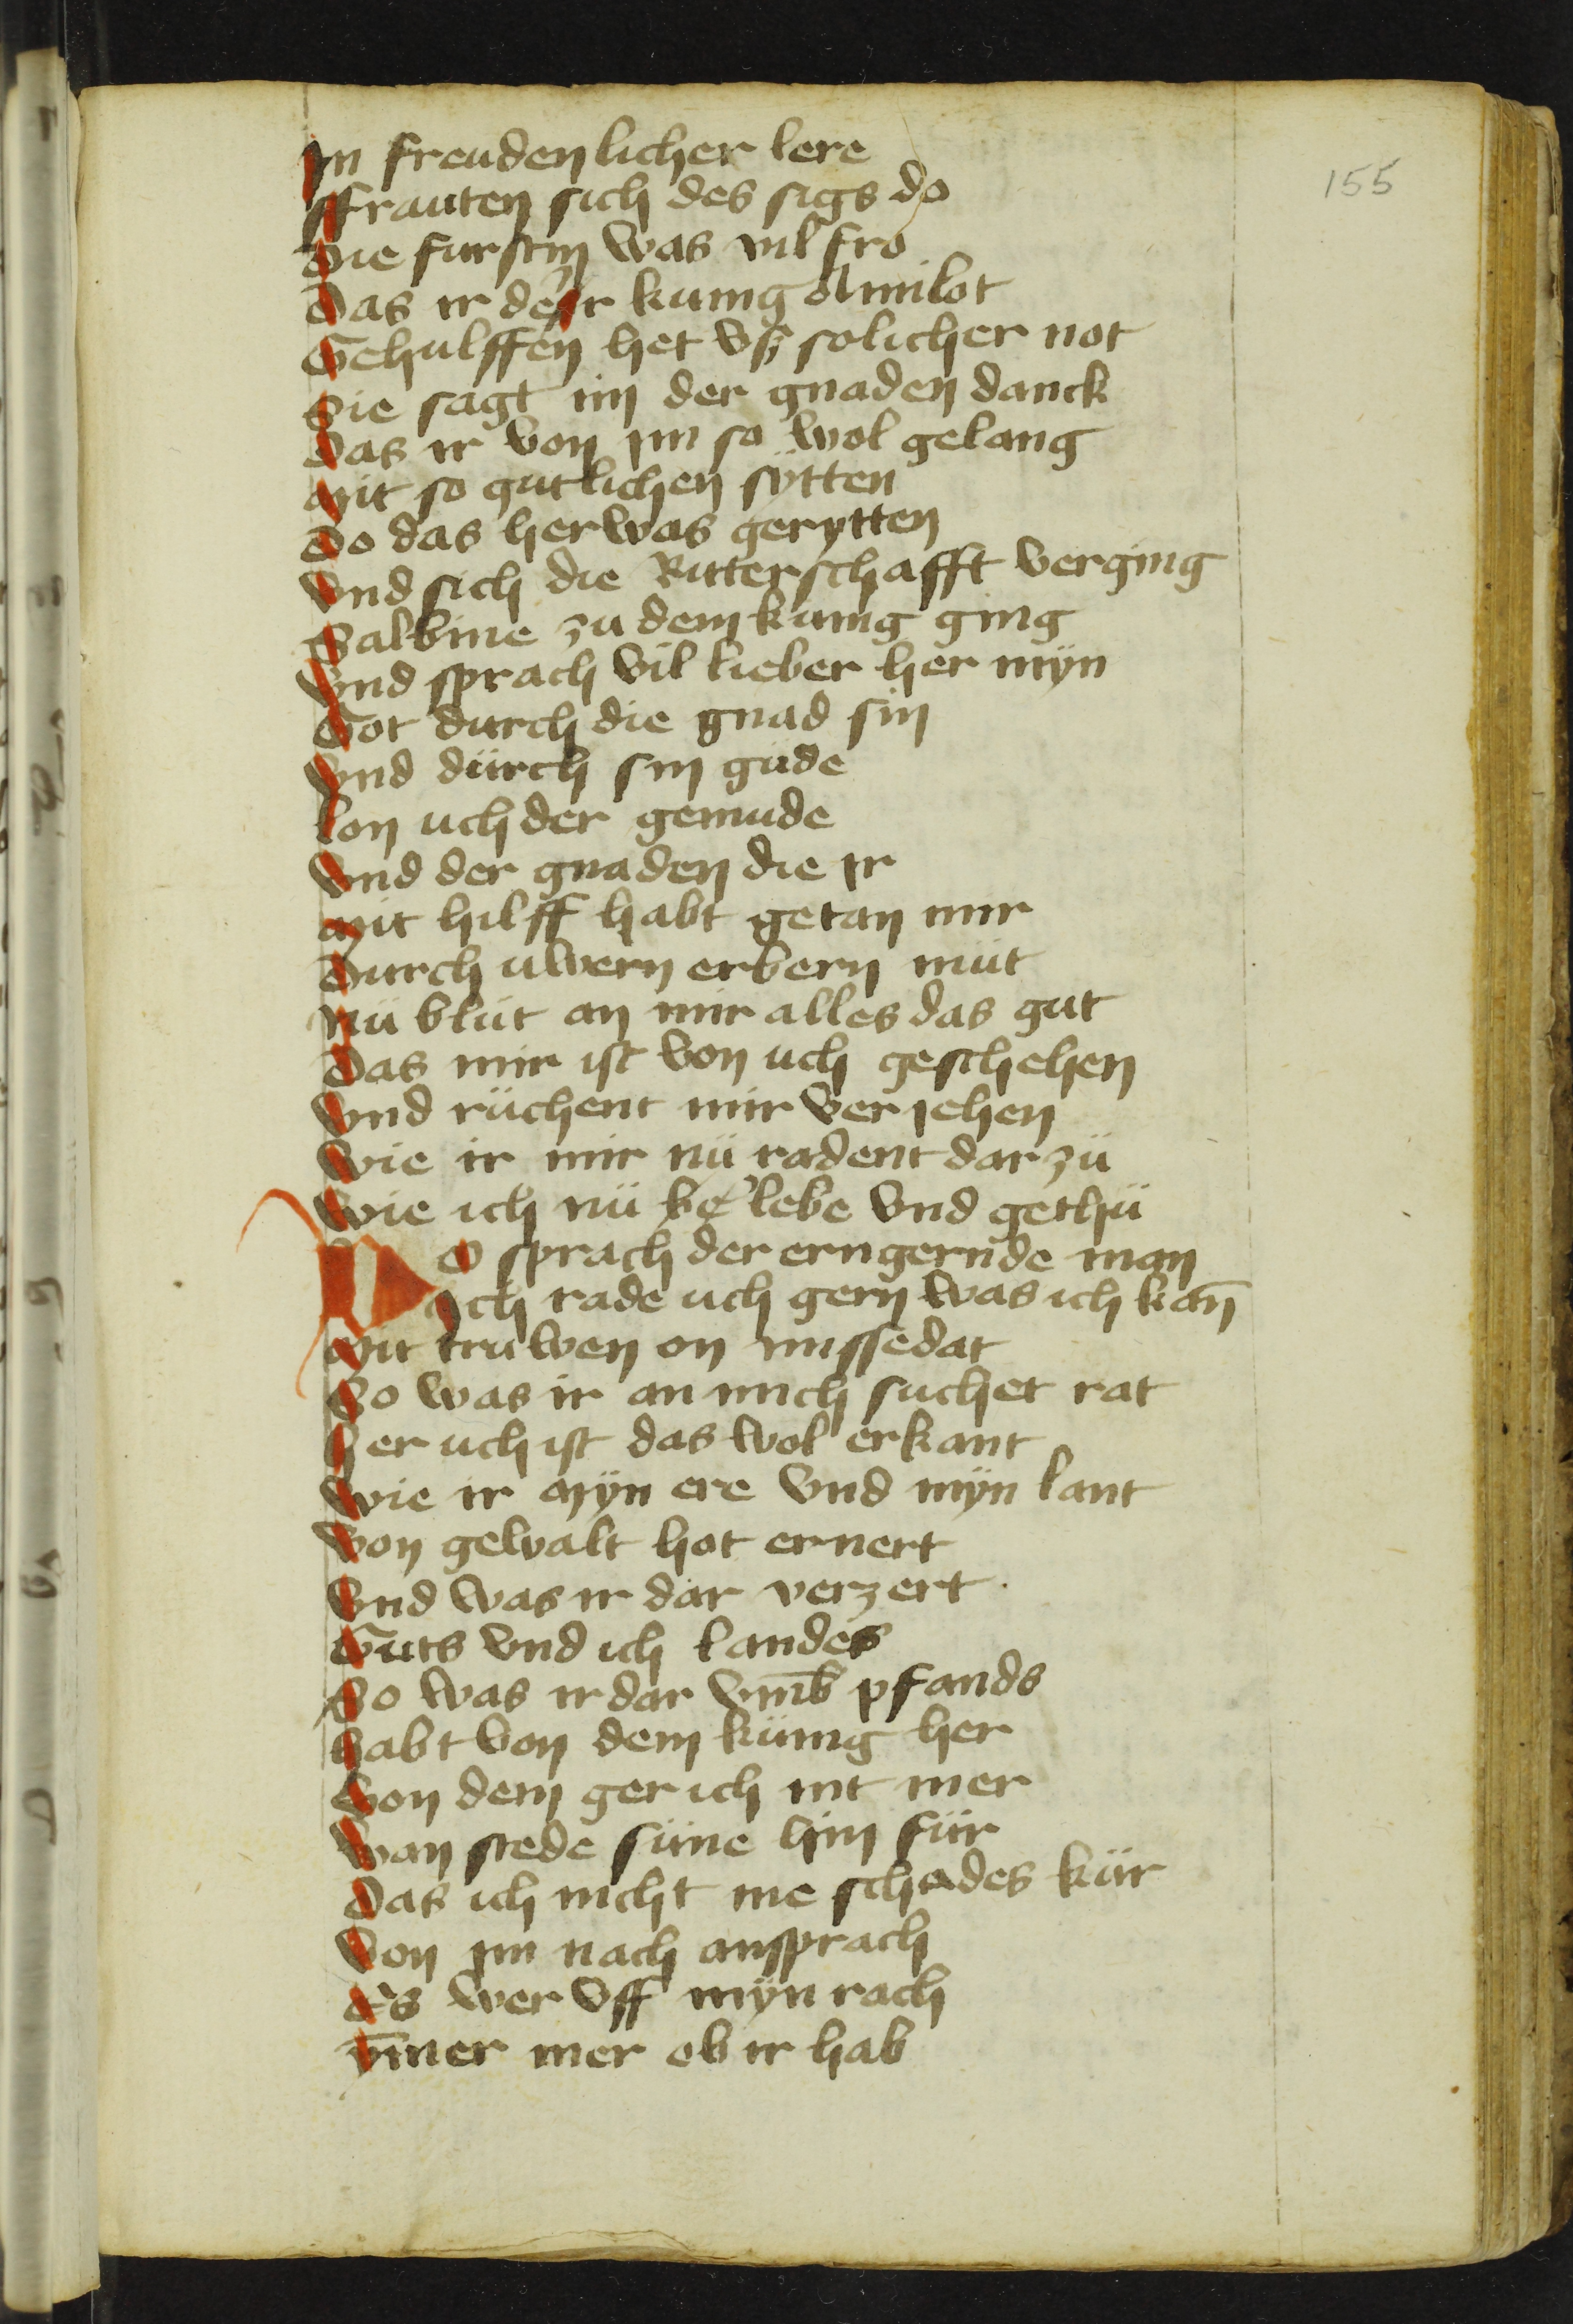 155
In freuden licher lere
ffrauten sich des sigs do
Die furstin was vil fro
Das ir der kunig Amilot
Gehulffen het vß solicher not
Sie sagt im der gnaden danck
Das ir von im so wol gelang
Mit so gutlichen sytten
Do das her was gerytten
Vnd sich die Ritterschafft verging
Salbine zu dem kunig ging
Vnd sprach vil lieber her myn
Got durch die gnad sin
Vnd dürch sin gude
Lon uch der gemude
Vnd der gnaden die ir
Mit hilff habt getan mir
Durch uwern erbern müt
Nü blüt an mir alles das gut
Das mir ist von uch geschehen
Vnd rüchent mir ver jehen
Wie ir mir nü radent dar zü
Wie ich nü lebe vnd gethü
Do sprach der erngernde man
Ich rade uch gern was ich kan̄
Mit truwen on missedat
So was ir an mich suchet rat
Her uch ist das wol erkant
Wie ir myn ere vnd myn lant
Von gewalt hot ernert
Vnd was ir dar verzert
Guts vnd ich landes
So was ir dar vm̄b pfands
habt von dem künig her
Von dem ger ich nit mer
Wan stede süne hin für
Das ich nicht me schades kür
Von im nach ansprach
Es wer vff myn rach
ym̄er mer ob ir hab